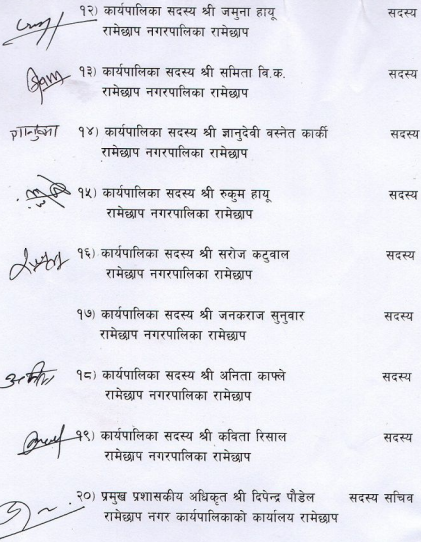 १२) कार्यपालिका सदस्य श्री जमुना हायू सदस्य
रामेछाप नगरपालिका रामेछाप
१३) कार्यपालिका सदस्य श्री समिता वि.क. सदस्य
रामेछाप नगरपालिका रामेछाप
१४) कार्यपालिका सदस्य श्री ज्ञानुदेवी वस्नेत कार्की सदस्य
रामेछाप नगरपालिका रामेछाप
१५) कार्यपालिका सदस्य श्री रुकुम हायू सदस्य
रामेछाप नगरपालिका रामेछाप
१६) कार्यपालिका सदस्य श्री सरोज कटुवाल सदस्य
रामेछाप नगरपालिका रामेछाप
१७) कार्यपालिका सदस्य श्री जनकराज सुनुवार सदस्य
रामेछाप नगरपालिका रामेछाप
१८) कार्यपालिका सदस्य श्री अनिता काफ्ले सदस्य
रामेछाप नगरपालिका रामेछाप
१९) कार्यपालिका सदस्य श्री कविता रिसाल सदस्य
रामेछाप नगरपालिका रामेछाप
२०) प्रमुख प्रशासकीय अधिकृत श्री दिपेन्द्र पौडेल सदस्य सचिव
रामेछाप नगर कार्यपालिकाको कार्यालय रामेछाप